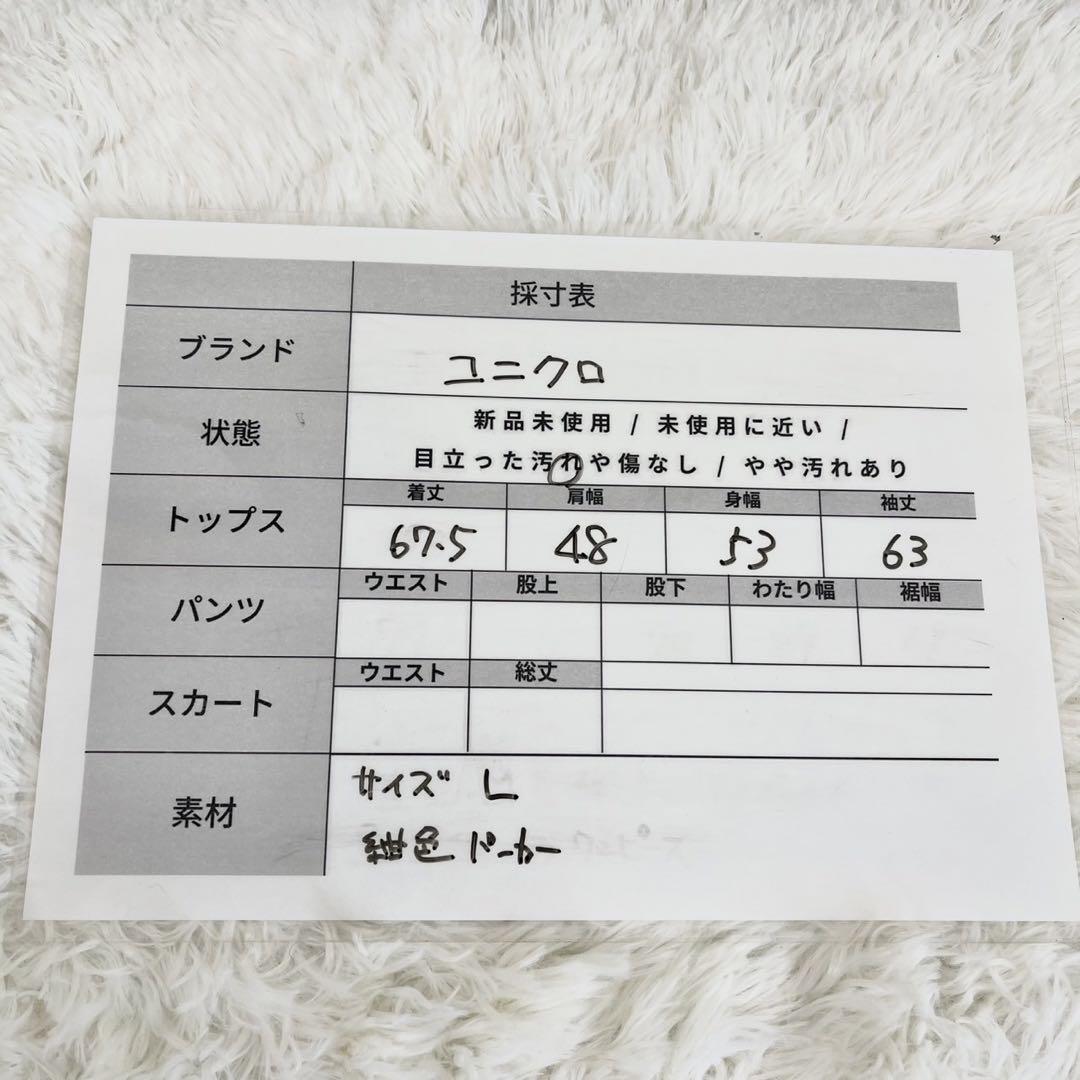 採寸表
ブランド ユニクロ
状態 新品未使用 / 未使用に近い /
目立った汚れや傷なし / やや汚れあり
トップス 着丈 肩幅 身幅 袖丈
67.5 48 53 63
パンツ ウエスト 股上 股下 わたり幅 裾幅
スカート ウエスト 総丈
素材 サイズ L
紺色 パーカー